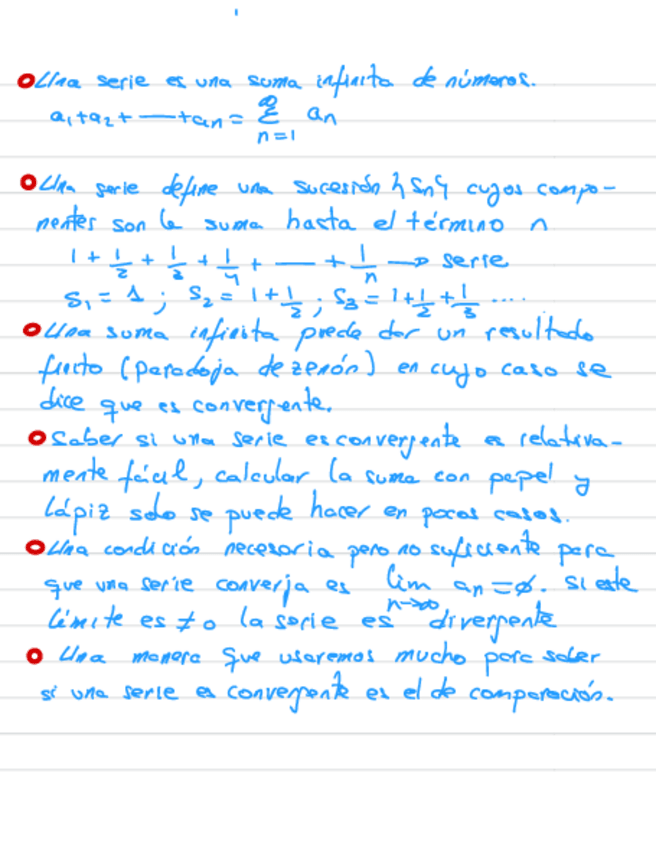 Una serie es una suma infinita de números.
a₁+a₂+——+an = ∞Σn=1 an
Una serie define una sucesión {Sn} cuyos compo-
nentes son la suma hasta el término n
1 + 1/2 + 1/3 + 1/4 + — + 1/n → serie
S₁ = 1 ; S₂ = 1+1/2 ; S₃ = 1+1/2+1/3 ....
Una suma infinita puede dar un resultado
finito (paradoja de zenón) en cuyo caso se
dice que es convergente.
Saber si una serie es convergente es relativa-
mente fácil, calcular la suma con papel y
lápiz solo se puede hacer en pocos casos.
Una condición necesaria pero no suficiente para
que una serie converja es lim n→∞ an = ∅. Si este
límite es ≠ 0 la serie es divergente
Una manera que usaremos mucho para saber
si una serie es convergente es el de comparación.